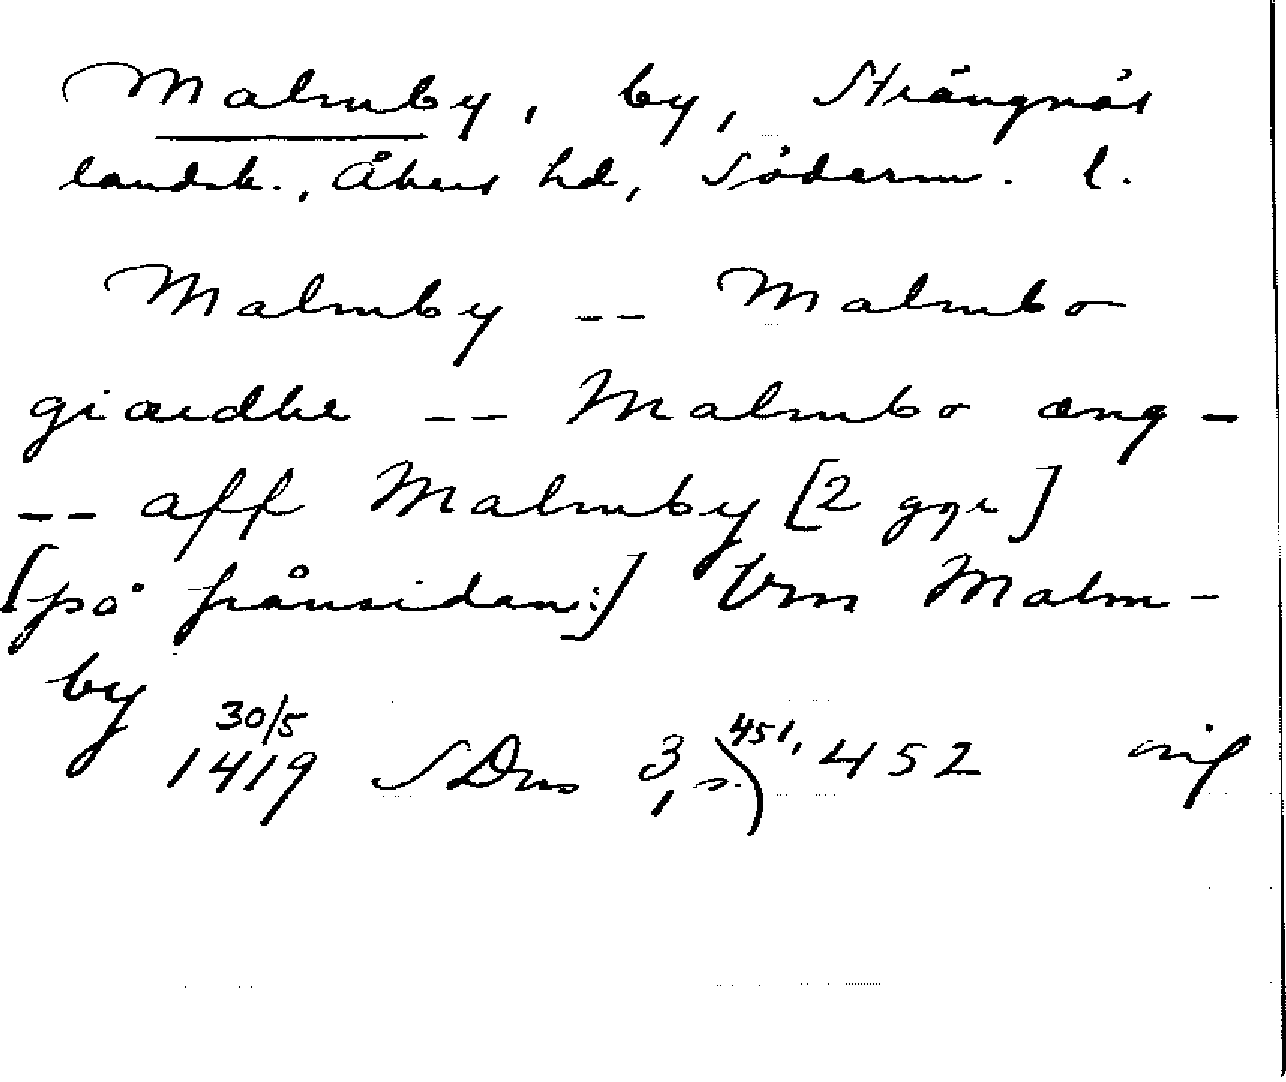 Malmby, by, Strängnäs
landsk., Åkers hd, Söderm. l.
Malmby -- Malmbo
giærdhe -- Malmbo æng -
-- aff Malmby [2 ggr]
[på frånsidan:] Vm Malm-
by
30/5
1419 SDns 3, s. 451, 452 orig